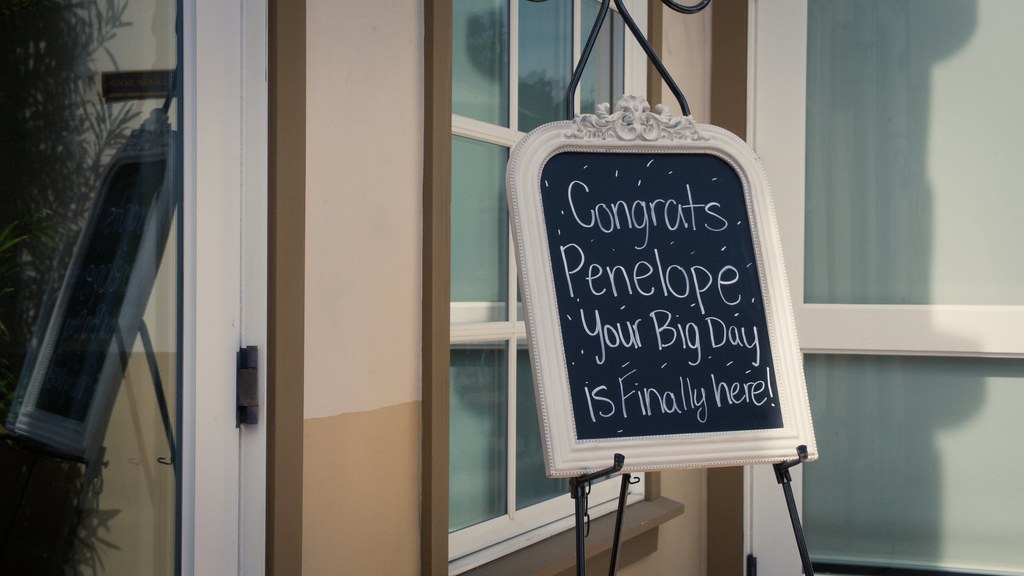 Congrats
Penelope
Your Big Day
is Finally here!